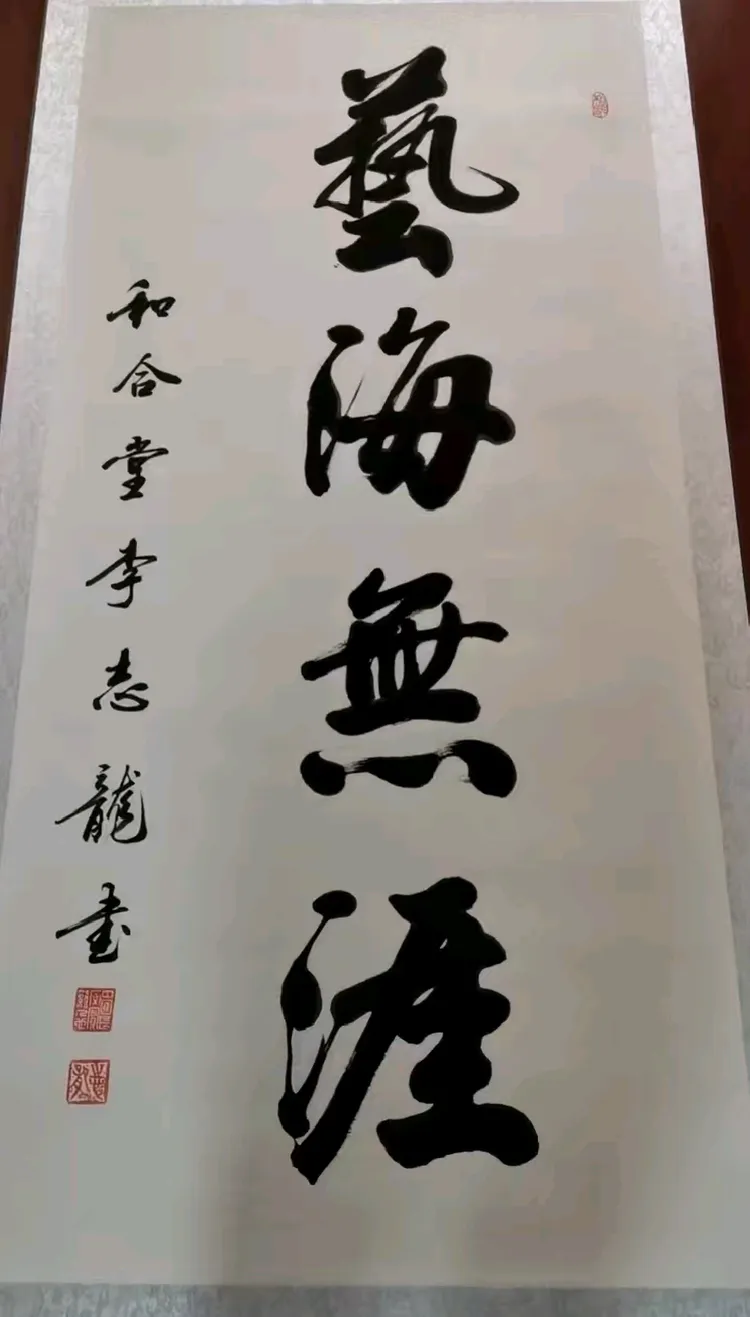 藝海無涯
和合堂李志龍書